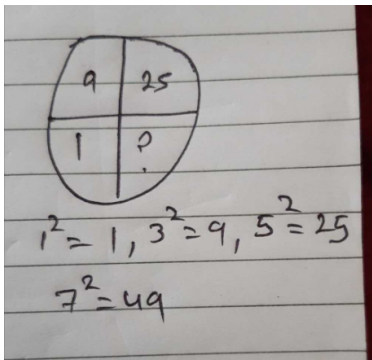 9 25
1 ?
1² = 1, 3² = 9, 5² = 25
7² = 49